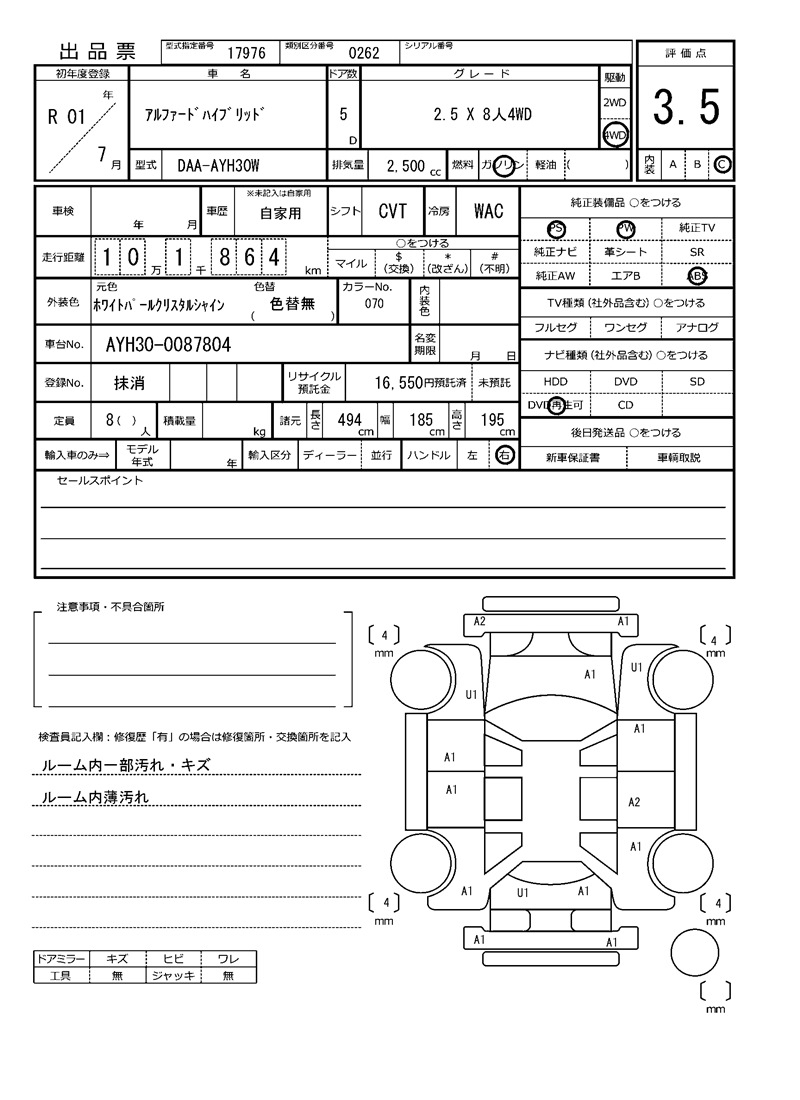 出品票
型式指定番号 17976 類別区分番号 0262 シリアル番号
評価点
3.5
内装 A B C
初年度登録 車名 ドア数 グレード 駆動
R 01 年 7 月
アルファードハイブリッド
5 D
2.5 X 8人4WD
2WD
4WD
型式 DAA-AYH30W 排気量 2,500 cc 燃料 ガソリン 軽油 ( )
車検 年 月 車歴 ※未記入は自家用 自家用 シフト CVT 冷房 WAC
走行距離 1 0 万 1 千 8 6 4 km
○をつける
マイル $(交換) *(改ざん) #(不明)
外装色 元色 ホワイトパールクリスタルシャイン 色替 ( 色替無 ) カラーNo. 070 内装色
車台No. AYH30-0087804 名変期限 月 日
登録No. 抹消 リサイクル預託金 16,550円預託済 未預託
定員 8( ) 人 積載量 kg 諸元 長さ 494 cm 幅 185 cm 高さ 195 cm
輸入車のみ⇒ モデル年式 年 輸入区分 ディーラー 並行 ハンドル 左 右
純正装備品 ○をつける
PS PW 純正TV
純正ナビ 革シート SR
純正AW エアB ABS
TV種類(社外品含む)○をつける
フルセグ ワンセグ アナログ
ナビ種類(社外品含む)○をつける
HDD DVD SD
DVD再生可 CD
後日発送品 ○をつける
新車保証書 車輌取説
セールスポイント
注意事項・不具合箇所
検査員記入欄:修復歴「有」の場合は修復箇所・交換箇所を記入
ルーム内一部汚れ・キズ
ルーム内薄汚れ
ドアミラー キズ ヒビ ワレ
工具 無 ジャッキ 無
A2 A1
4 mm
4 mm
A1
U1
U1
A1
A1
A1
A2
A1
A1 U1 A1
4 mm
4 mm
A1 A1
mm